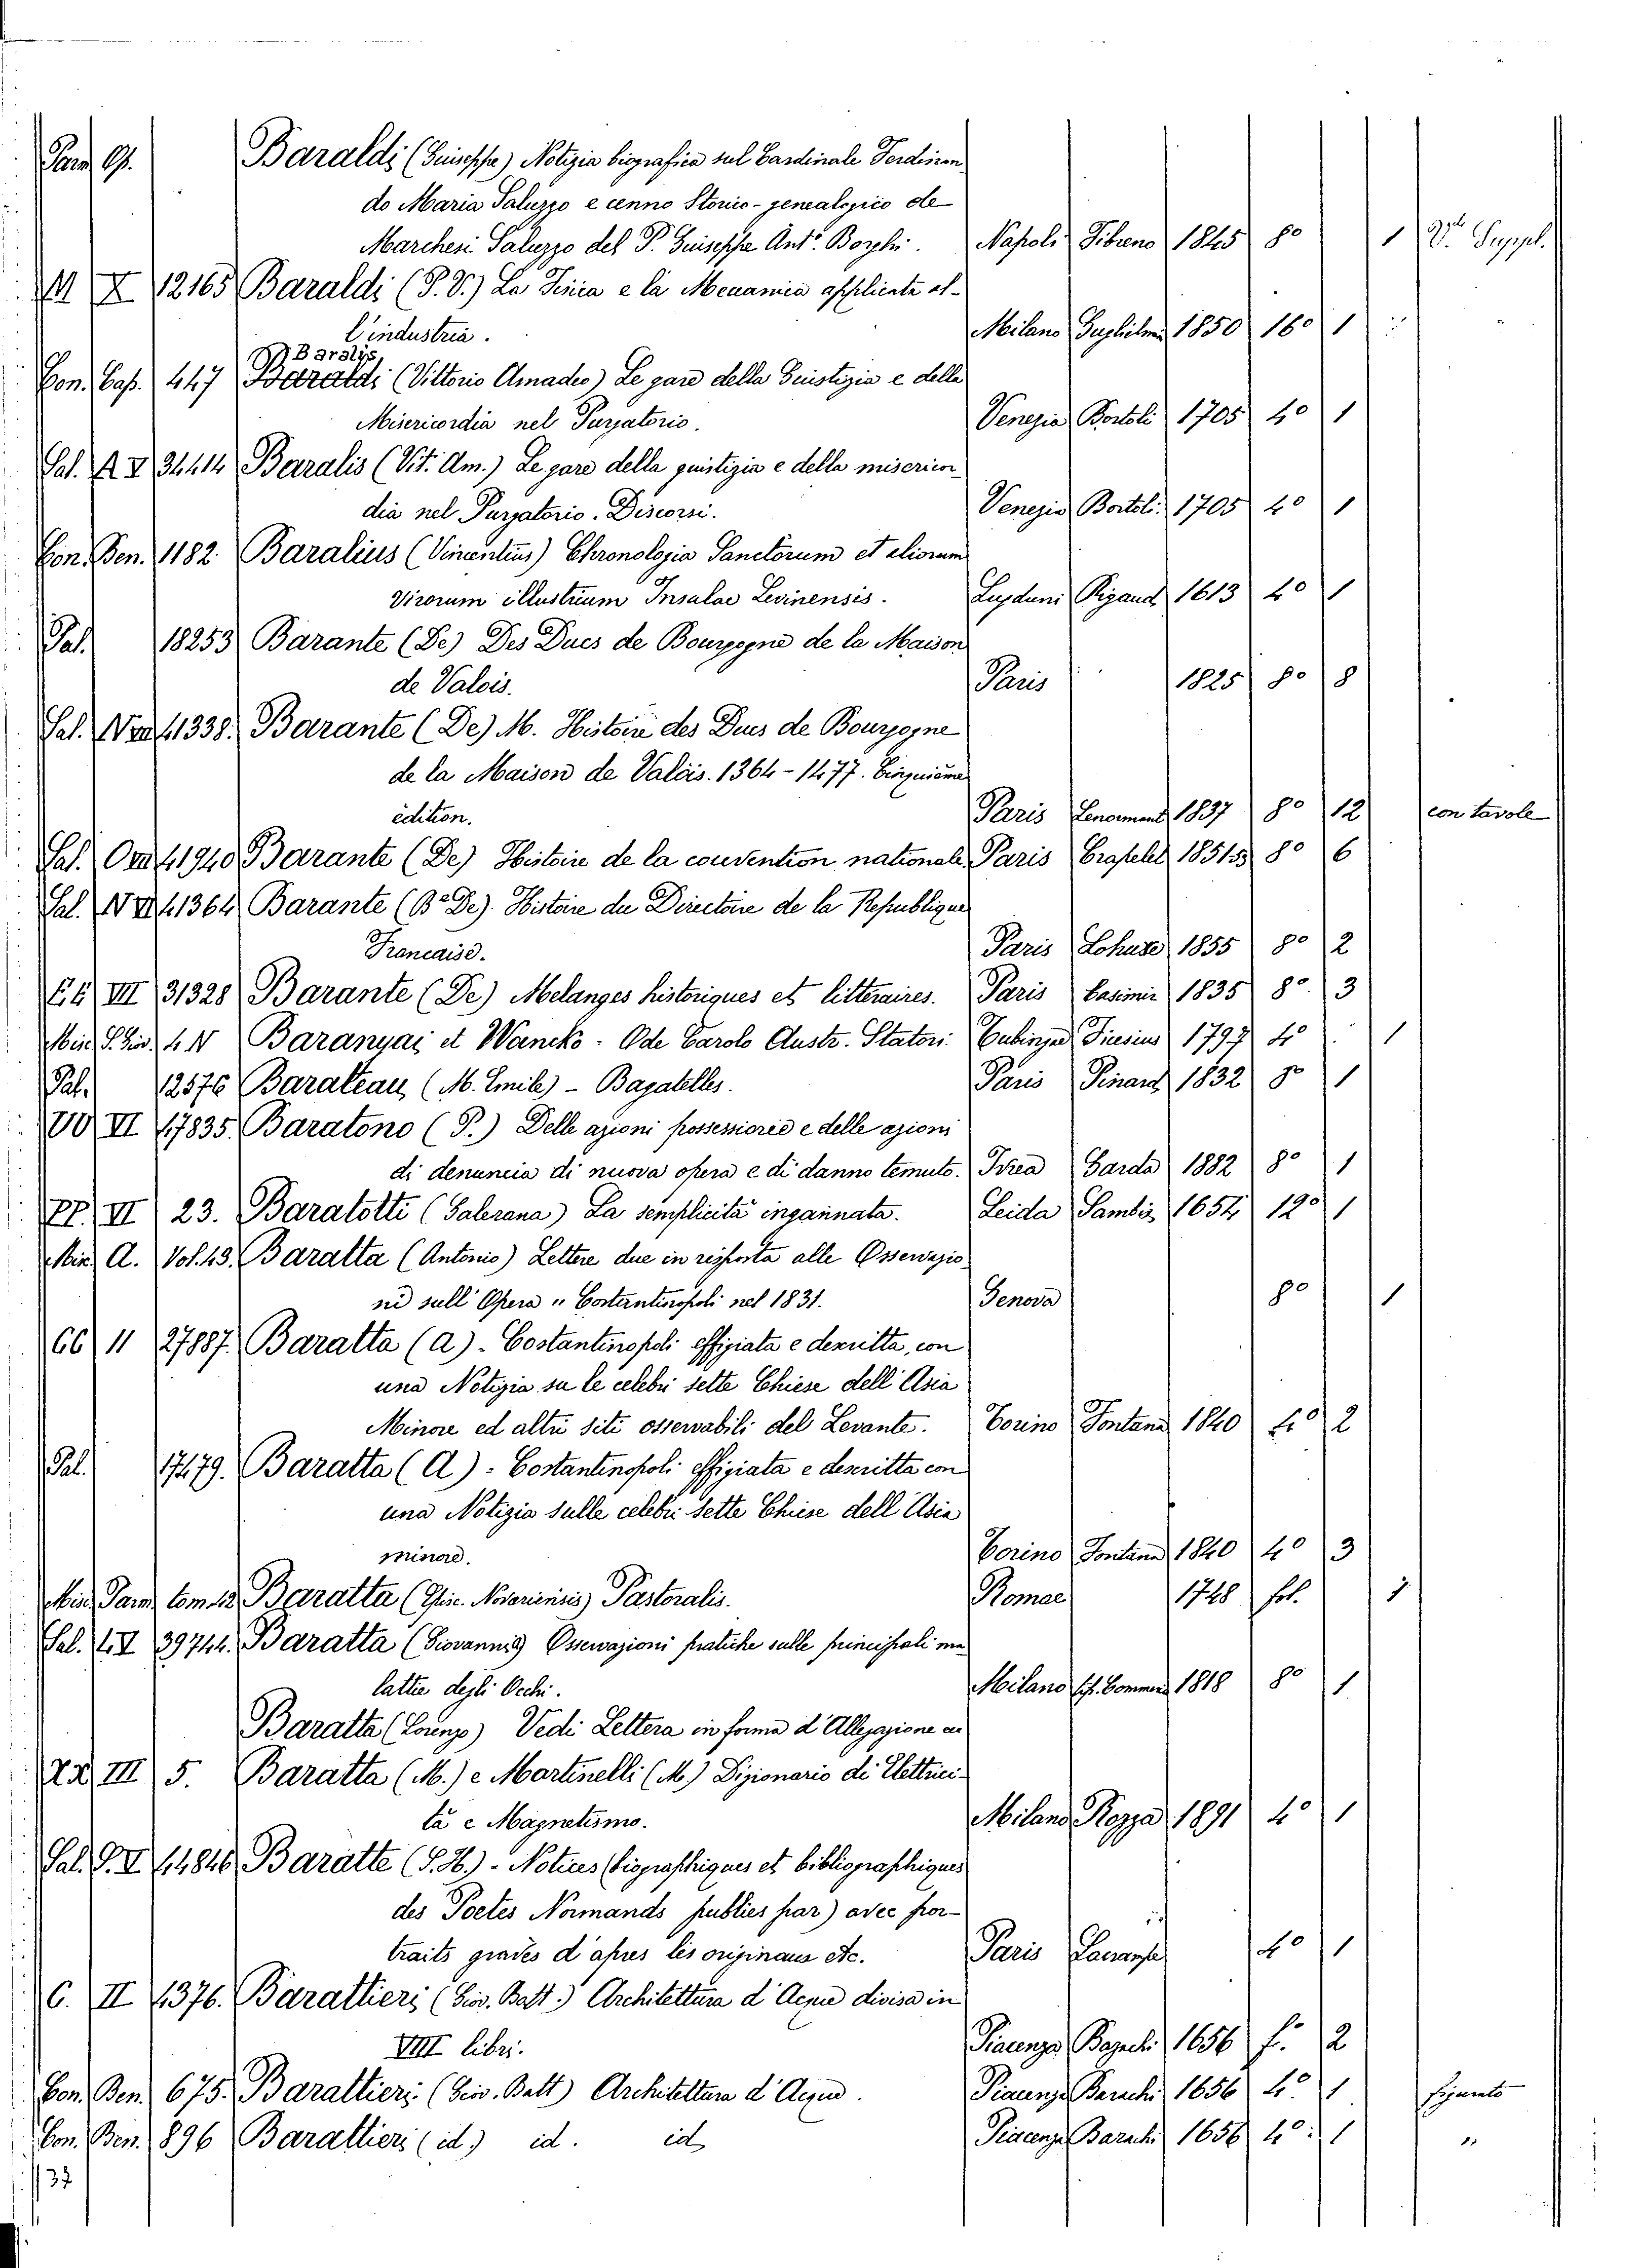 Parm. G. Baraldi (Giuseppe) Notizia biografica sul Cardinale Ferdinan
do Maria Saluzzo e cenno Storico-genealogico de
Marchesi Saluzzo del P. Giuseppe Ant.o Borghi. Napoli Fibreno 1845 8o 1 V. Suppl.
M X 12165 Baraldi (P. V.) La Fisica e la Meccanica applicata al-
l'industria. Milano Guglielmi 1850 16o 1
Baralis
Con. Cap. 447 Baraldi (Vittorio Amadeo) Le gare della Giustizia e della
Misericordia nel Purgatorio. Venezia Bortoli 1705 4o 1
Sal. A. V 34414 Baralis (Vit. Am.) Le gare della giustizia e della misericor
dia nel Purgatorio. Discorsi. Venezia Bortoli 1705 4o 1
Con. Ben. 1182. Baralius (Vincentius) Chronologia Sanctorum et aliorum
Virorum illustrium Insulae Lerinensis. Lugduni Rigaud 1613 4o 1
Pal. 18253 Barante (De) Des Ducs de Bourgogne de la Maison
de Valois. Paris 1825 8o 8
Sal. 41338. Barante (De) M. Histoire des Ducs de Bourgogne
de la Maison de Valois. 1364-1477. Cinquième
édition. Paris Lenormant 1837 8o 12 con tavole
Sal. 41940 Barante (De) Histoire de la convention nationale Paris 1851 8o 6
Sal. N 41364 Barante (B.e De). Histoire du Directoire de la Republique
Francaise. Paris 1855 8o 2
VIII 31328 Barante (De) Melanges historiques et litteraires. Paris Casimir 1835 8o. 3
Baranyai et Wancko - Ode Carolo Austr. Statori. Tubingae 1797 4o 1
Pal. 12576 Barateau (M. Emile) - Bagatelles. Paris Pinard 1832 8o 1
VI 17835. Baratono (P.) Delle azioni possessorie e delle azioni
di denuncia di nuova opera e di danno temuto. Ivrea Garda 1882 8o 1
PP. VI 23. Baratotti (Galerana) La semplicità ingannata. Leida Sambix 1654 12o 1
Mis. A. Vol. 43. Baratta (Antonio) Lettere due in risposta alle Osservazio
ni sull' Opera „ Costantinopoli nel 1831. Genova 8o 1
66 11 27887. Baratta (A). Costantinopoli effigiata e descritta, con
una Notizia su le celebri sette Chiese dell' Asia
Minore ed altri siti osservabili del Levante. Torino Fontana 1840 4o 2
Pal. 17479. Baratta (A) - Costantinopoli effigiata e descritta con
una Notizia sulle celebri sette Chiese dell' Asia
minore. Torino Fontana 1840 4o 3
Mis. Parm. tom. Baratta Pastoralis. Romae 1748 fol. 1
Sal. 39744. Baratta (Giovanni) Osservazioni pratiche sulle principali ma
lattie degli Occhi. Milano 1818 8o 1
Baratta (Lorenzo) Vedi Lettera in forma d'Allegazione
III 5. Baratta (M.) e Martinelli (M.) Dizionario di Elettrici-
tà e Magnetismo. Milano 1891 4o 1
Sal. P. V 44846 Baratte (P. H.) - Notices (biographiques et bibliographiques
des Poetes Normands publies par) avec por-
traits gravés d'apres les originaux etc. Paris 4o 1
C. II 4376. Barattieri (Giov. Batt.) Architettura d'Acque divisa in
VIII libri. Piacenza 1656 f.o 2
Con. Ben. 675. Barattieri (Giov. Batt) Architettura d'Acque. Piacenza 1656 4o 1 figurato
Con. Ben. 896 Barattieri (id.) id. id Piacenza 1656 4o. 1 „
37